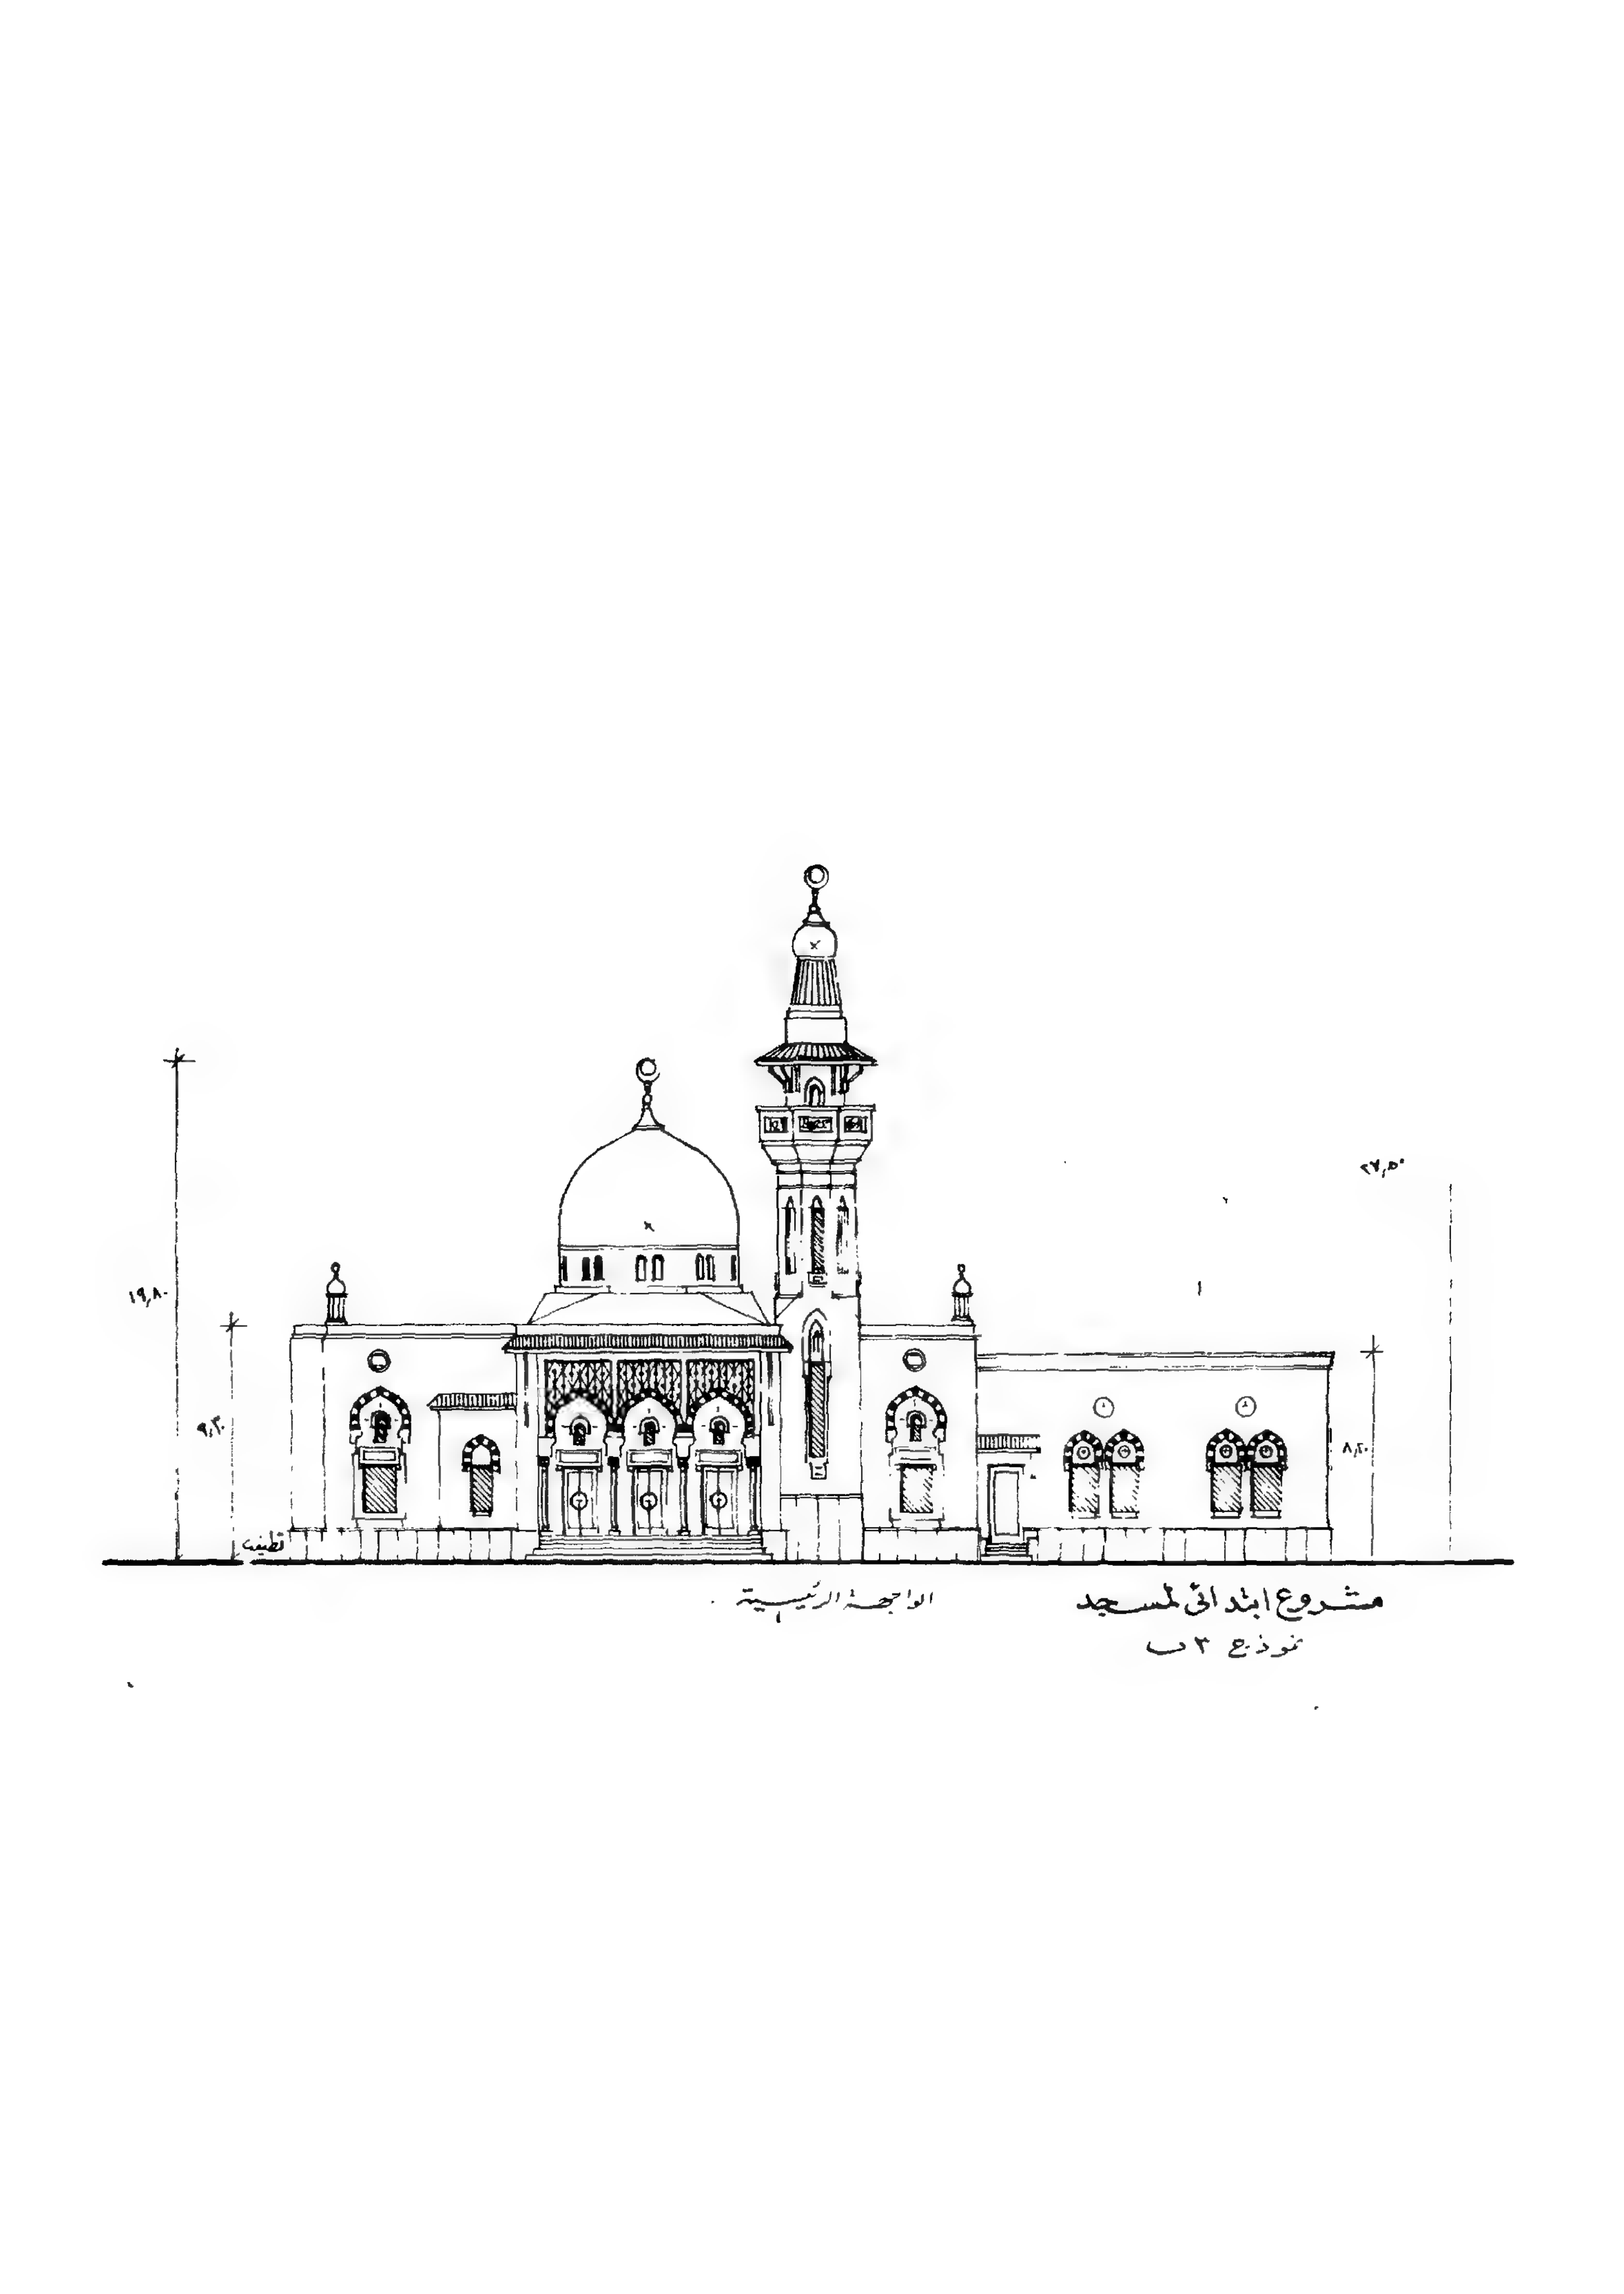 ٢٧,٥٠
١٩,٨٠
٩,٣٠
٨,٢٠
الواجهة الرئيسية
مشروع ابتدائى لمسجد
نموذج ٣ ب